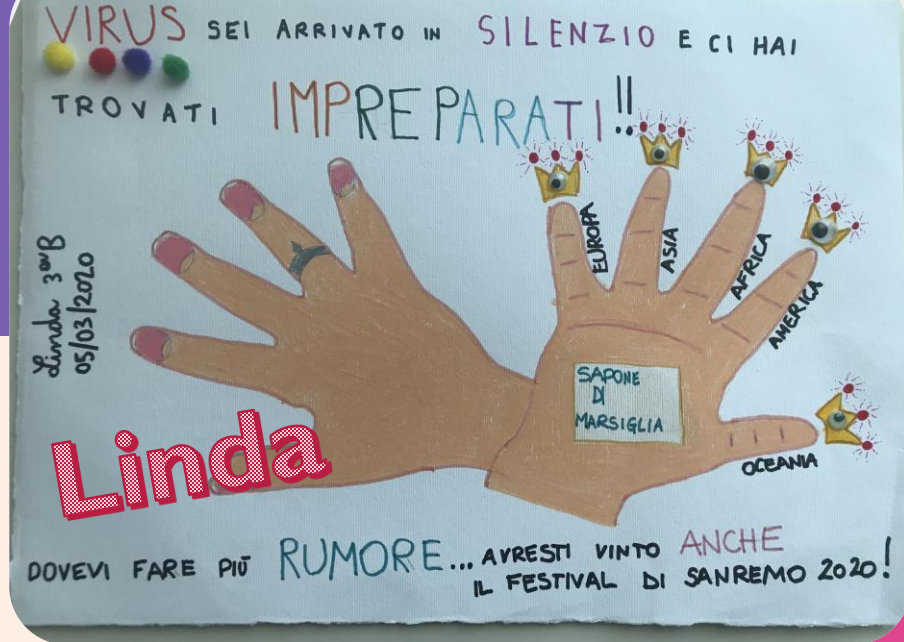 VIRUS SEI ARRIVATO IN SILENZIO E CI HAI
TROVATI IMPREPARATI!!
Linda 3ª B
05/03/2020
EUROPA
ASIA
AFRICA
AMERICA
OCEANIA
SAPONE
DI
MARSIGLIA
Linda
DOVEVI FARE PIÙ RUMORE... AVRESTI VINTO ANCHE
IL FESTIVAL DI SANREMO 2020!